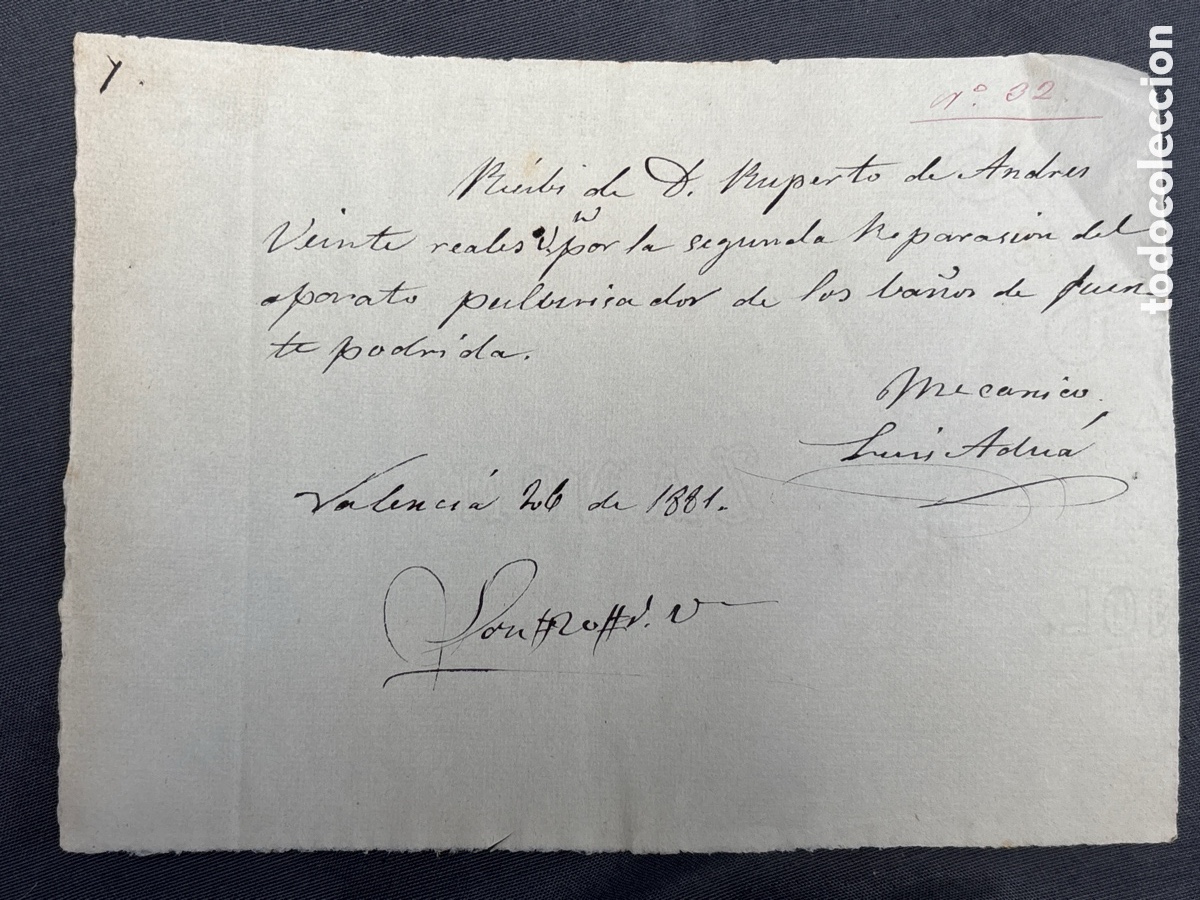 nº 32
Recibi de D. Ruperto de Andres
Veinte reales por la segunda Reparasion del
aparato pulverisador de los baños de fuen
te podrida.
Mecanico.
Luis Adriá
Valenciá 26 de 1881.
Son #20# r. v
todocoleccion